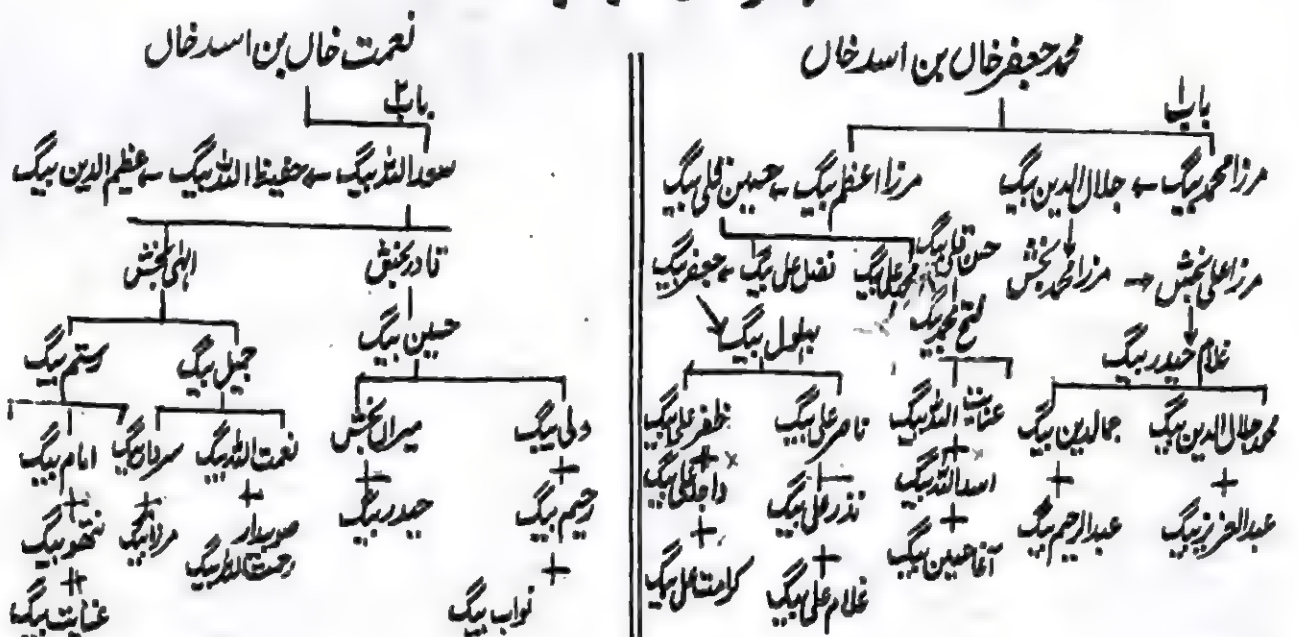 محمد جعفر خاں بن اسد خاں
باب ۱
مرزا محمد بیگ جلال الدین بیگ مرزا اعظم بیگ حسین قلی بیگ
مرزا علی بخش مرزا محمد بخش حسن قلی بیگ محمد علی بیگ فضل علی بیگ جعفر بیگ
غلام حیدر بیگ فتح محمد بیگ بہلول بیگ
محمد جلال الدین بیگ جمالدین بیگ عنایت اللہ بیگ ناصر علی بیگ ظفر علی بیگ
عبدالعزیز بیگ عبدالرحیم بیگ اسد اللہ بیگ نذر علی بیگ واجد علی بیگ
آغا معین بیگ غلام علی بیگ کرامت علی بیگ
نعمت خاں بن اسد خاں
باب ۲
سعد اللہ بیگ حفیظ اللہ بیگ عظیم الدین بیگ
قادر بخش الٰہی بخش
حسین بیگ جمیل بیگ رستم بیگ
ولی بیگ میراں بخش نعمت اللہ بیگ سردار بیگ امام بیگ
رحیم بیگ حیدر بیگ صوبیدار رحمت اللہ بیگ مرزا بیگ نتھو بیگ
نواب بیگ عنایت بیگ